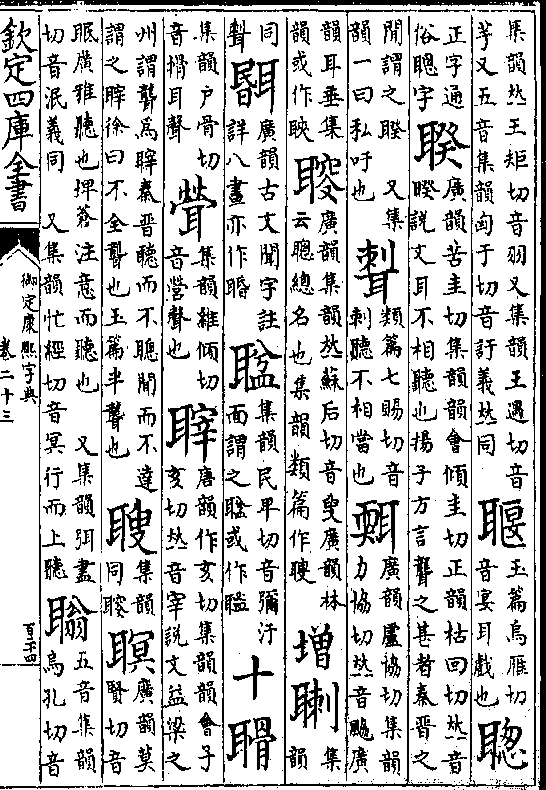 集韻𠀤王矩切音羽又集韻王遇切音
芋又五音集韻匈于切音訏義𠀤同
䁙玉篇烏雁切
音宴耳戲也
聦
正字通
俗聰字
聧廣韻苦圭切集韻韻會傾圭切正韻枯回切𠀤音
睽說文耳不相聽也揚子方言聾之甚者秦晉之
閒謂之聧 又集
韻一曰私吁也
類篇七賜切音
刺聽不相當也
廣韻盧協切集韻
力協切𠀤音颲廣
韻耳垂集
韻或作㕇
廣韻集韻𠀤蘇后切音叟廣韻𦕈
云聰總名也集韻類篇作䏂
增
集韻
同
聲
廣韻古文聞字註
詳八畫亦作䎽
集韻民卑切音彌汙
面謂之
十
集韻戶骨切
音搰耳聲
䁝集韻維傾切
音營聲也
聹唐韻作亥切集韻韻會子
亥切𠀤音宰說文益梁之
州謂聾爲聹秦晉聽而不聰聞而不達
謂之聹徐曰不全聾也玉篇半聾也
集韻
同
廣韻莫
賢切音
眠廣雅聽也埤蒼注意而聽也 又集韻弭盡
切音泯義同 又集韻忙經切音冥行而上聽
聬五音集韻
烏孔切音
欽定四庫全書
御定康熙字典
卷二十三